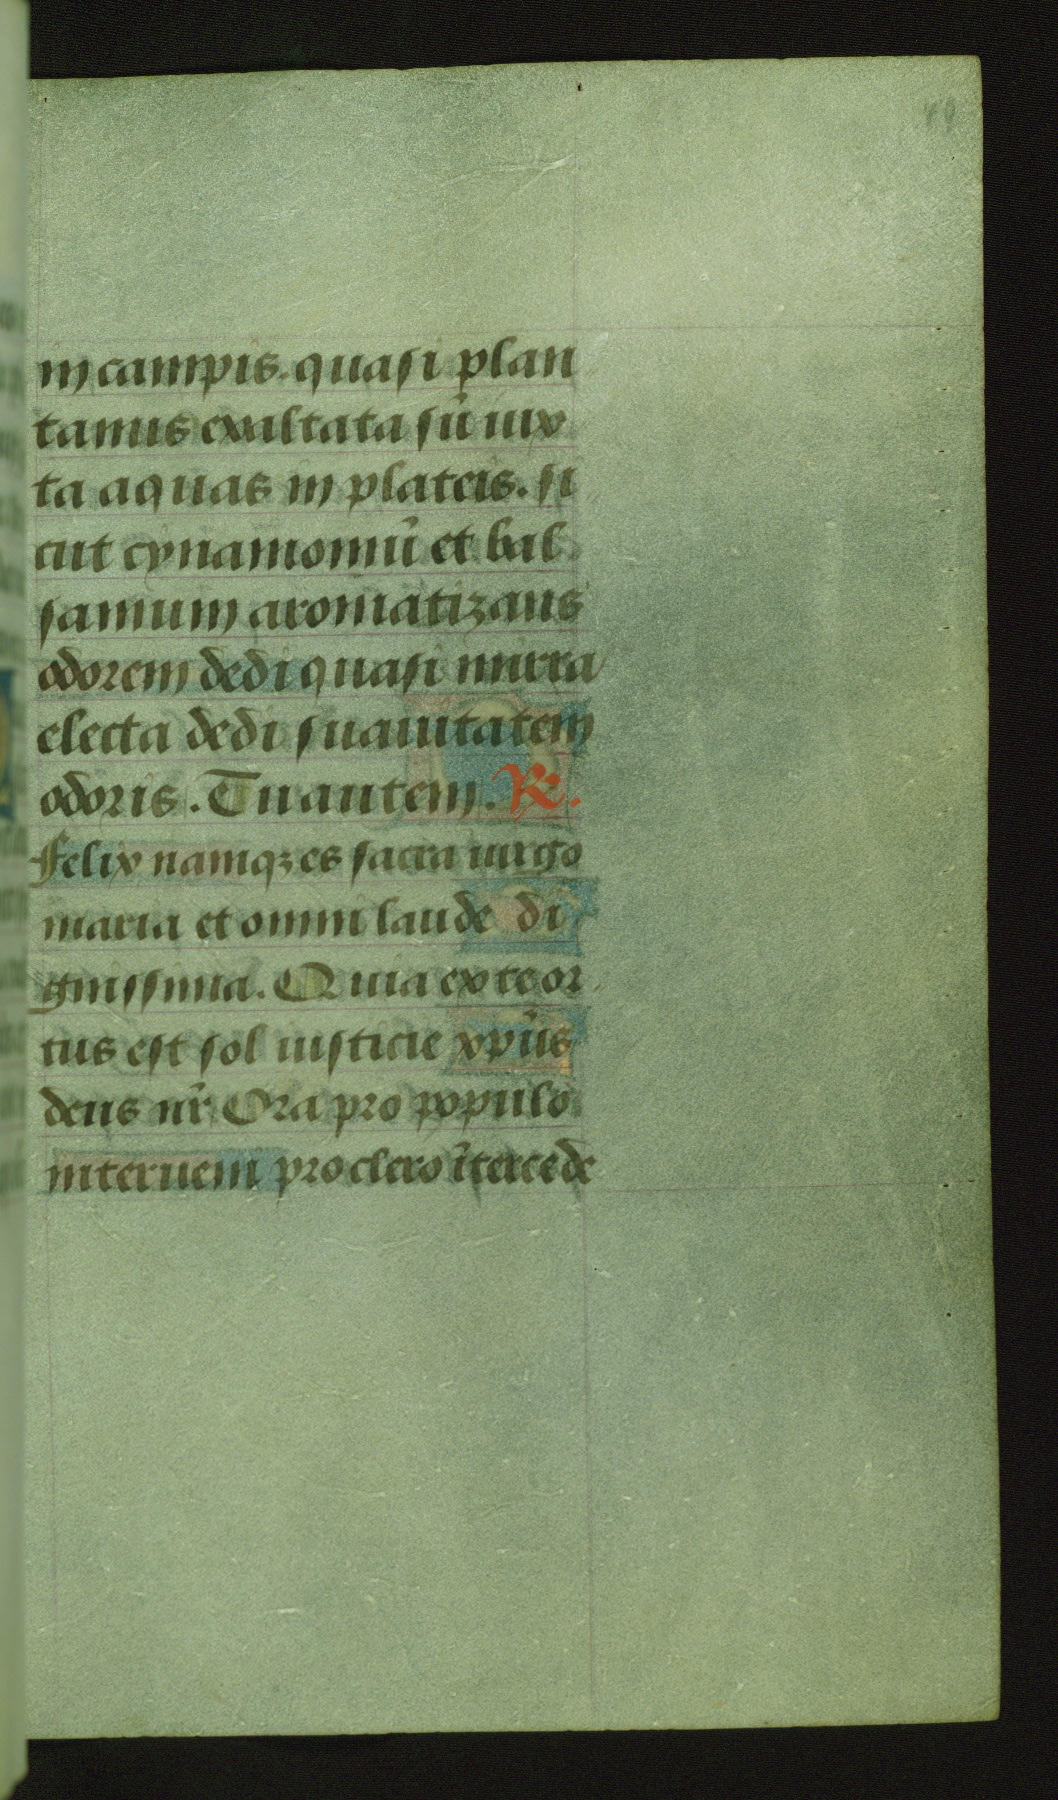 49
in campis. quasi plan
tanus exaltata sũ iux
ta aquas in plateis. si
cut cynamomũ et bal
samum aromatizans
odorem dedi quasi mirra
electa dedi suauitatem
odoris. Tu autem. ℟.
Felix namqꝫ es sacra uirgo
maria et omni laude di
gnissima. Quia ex te or
tus est sol iusticie xp̃us
deus nr̃ Ora pro populo
interueni pro clero ĩtercede